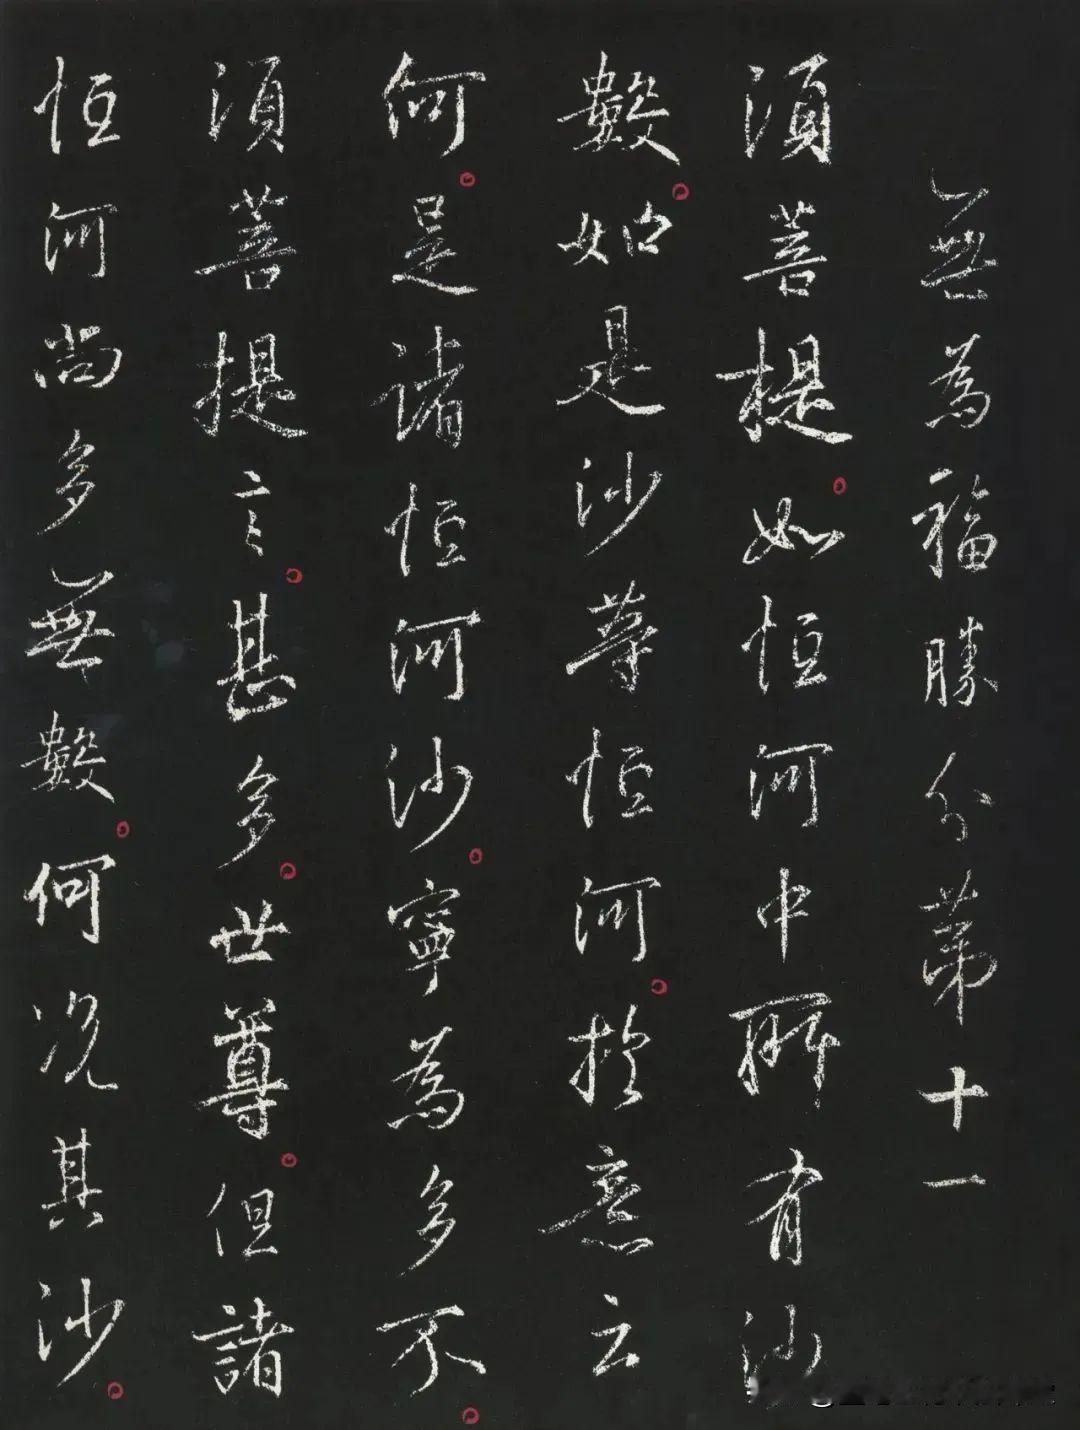 無為福勝分第十一
須菩提如恒河中所有沙
數如是沙等恒河於意云
何是諸恒河沙寧為多不
須菩提言甚多世尊但諸
恒河尚多無數何況其沙